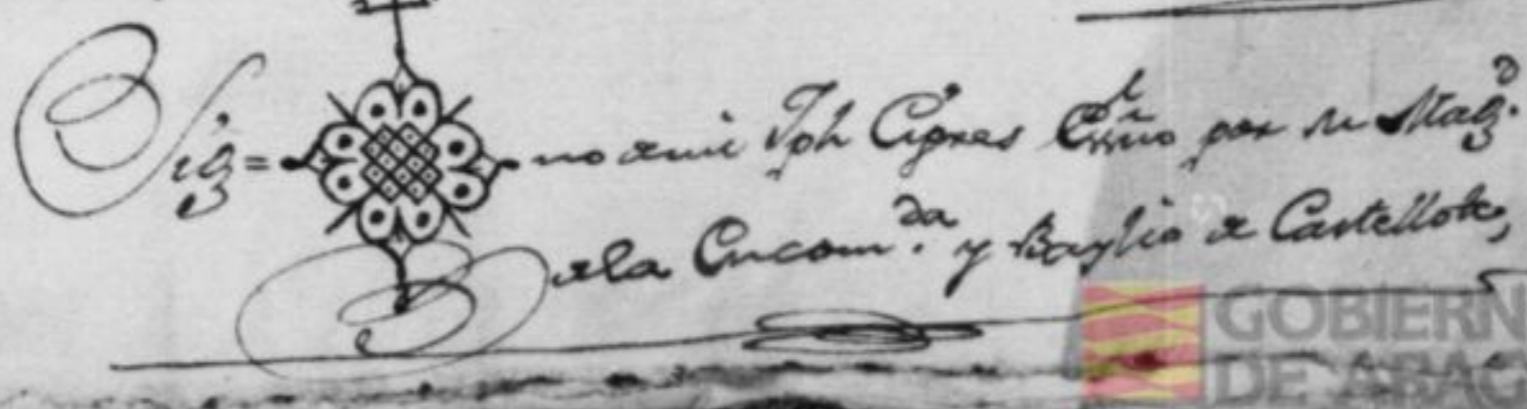 Sig= no de mi Jph Cipres Essno por su Magd.
de la Encomda. y Baylio de Castellote,
GOBIERN
DE ARAG